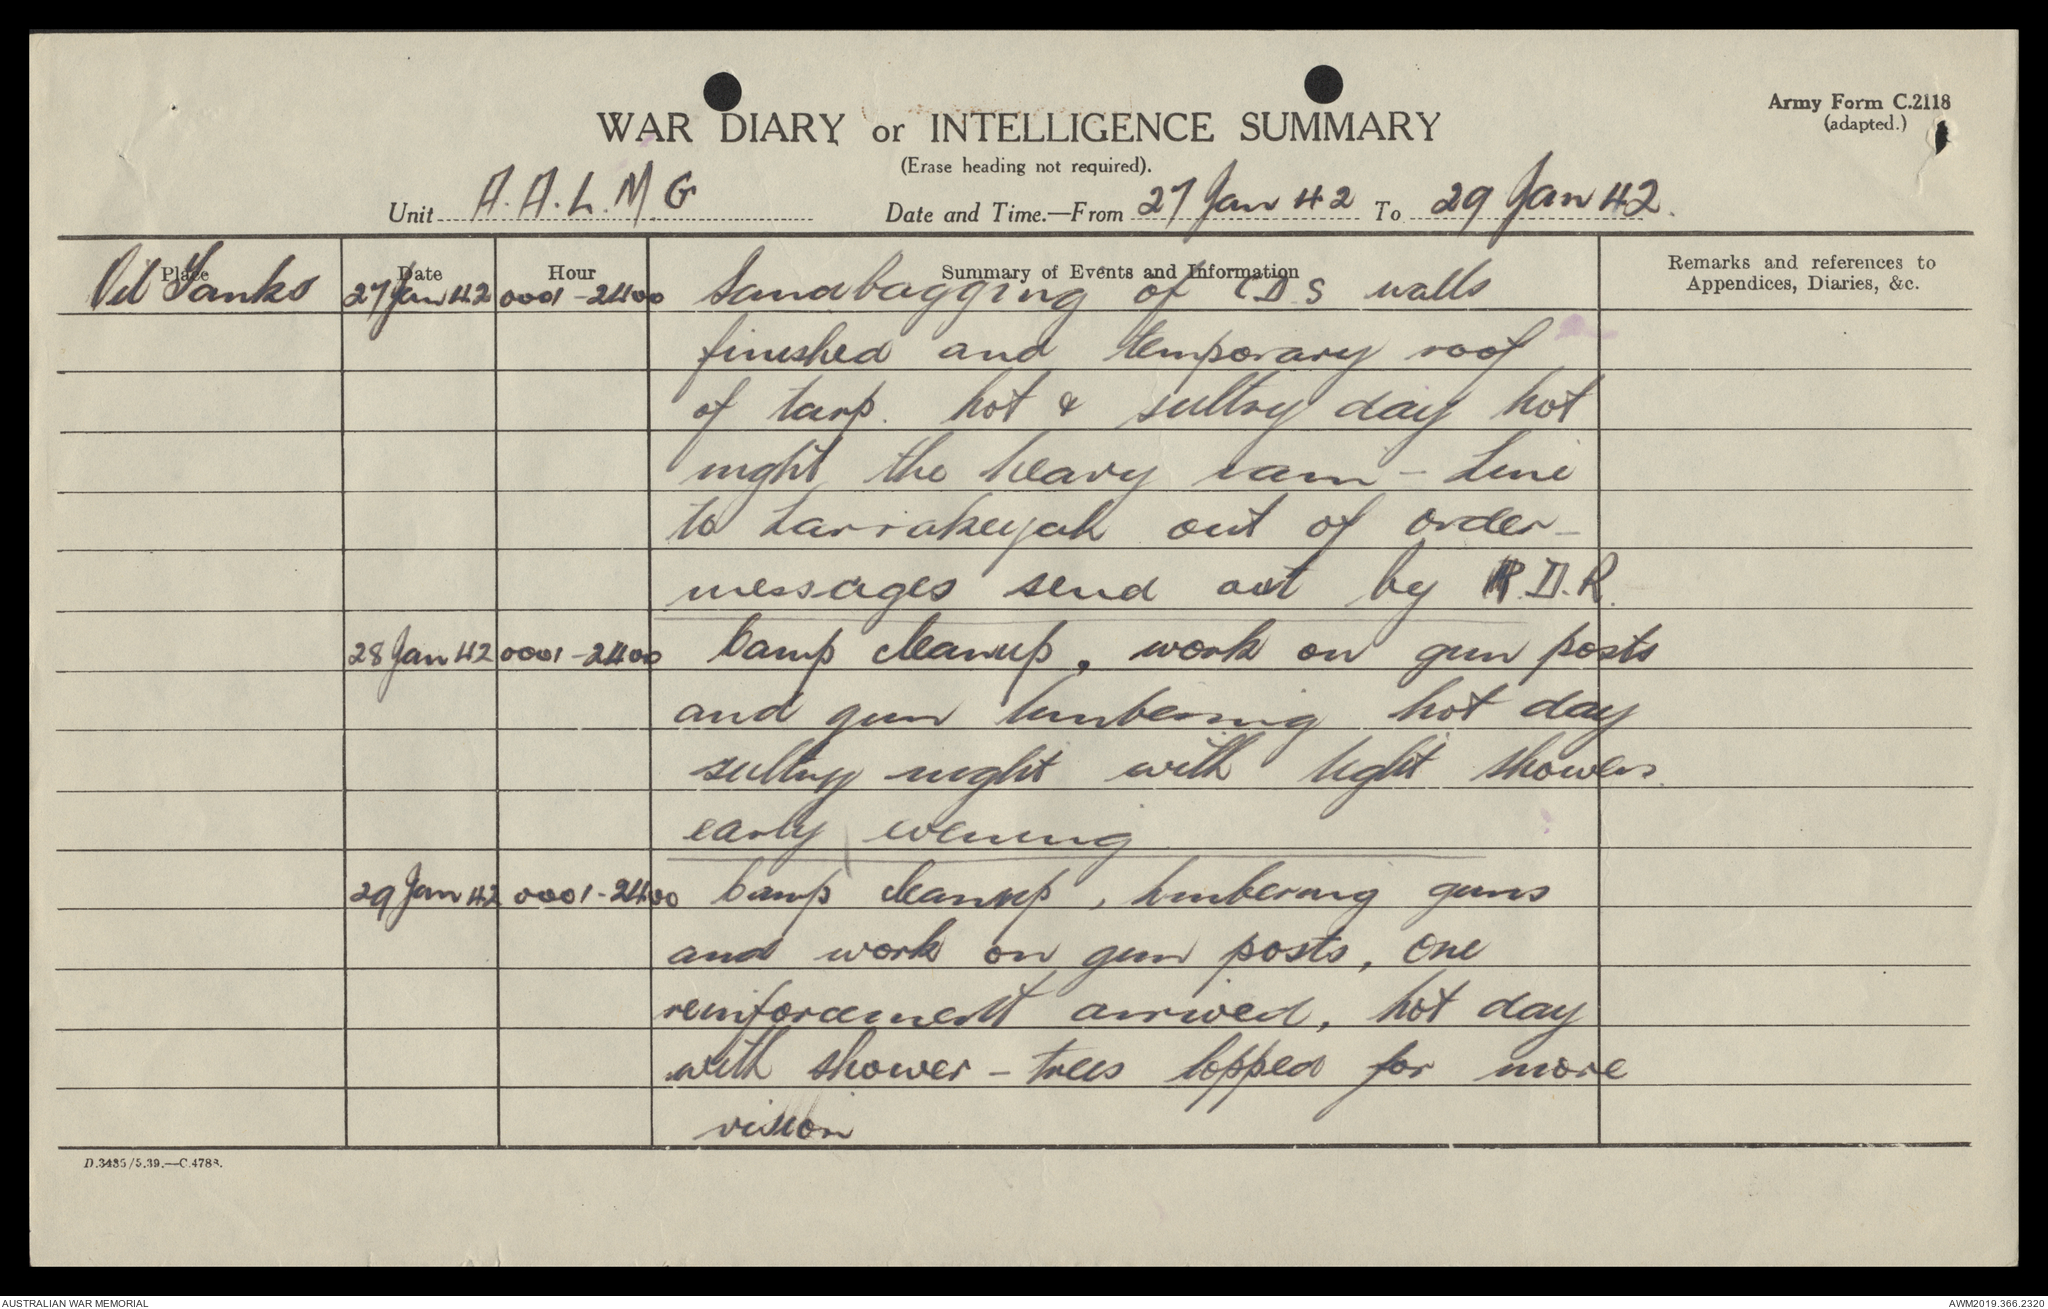 Army Form C.2118
(adapted.)
WAR DIARY or INTELLIGENCE SUMMARY
(Erase heading not required).
Unit A. A. L. M. G Date and Time.—From 27 Jan 42 To 29 Jan 42.
Place Date Hour Summary of Events and Information Remarks and references to
Appendices, Diaries, &c.
Oil Tanks 27 Jan 42 0001 - 2400 Sandbagging of C D S walls
finished and temporary roof
of tarp. hot & sultry day hot
night, the heavy rain - Line
to Larrakeyah out of order -
messages send out by D.R.
28 Jan 42 0001 - 2400 Camp cleanup, work on gun posts
and gun limbering hot day
sultry night with light showers
early evening
29 Jan 42 0001 - 2400 Camp cleanup, limbering guns
and work on gun posts, One
reinforcement arrived, hot day
with shower - trees lopped for more
vision
D.3435/5.39.—C.4788.
AUSTRALIAN WAR MEMORIAL AWM2019.366.2320